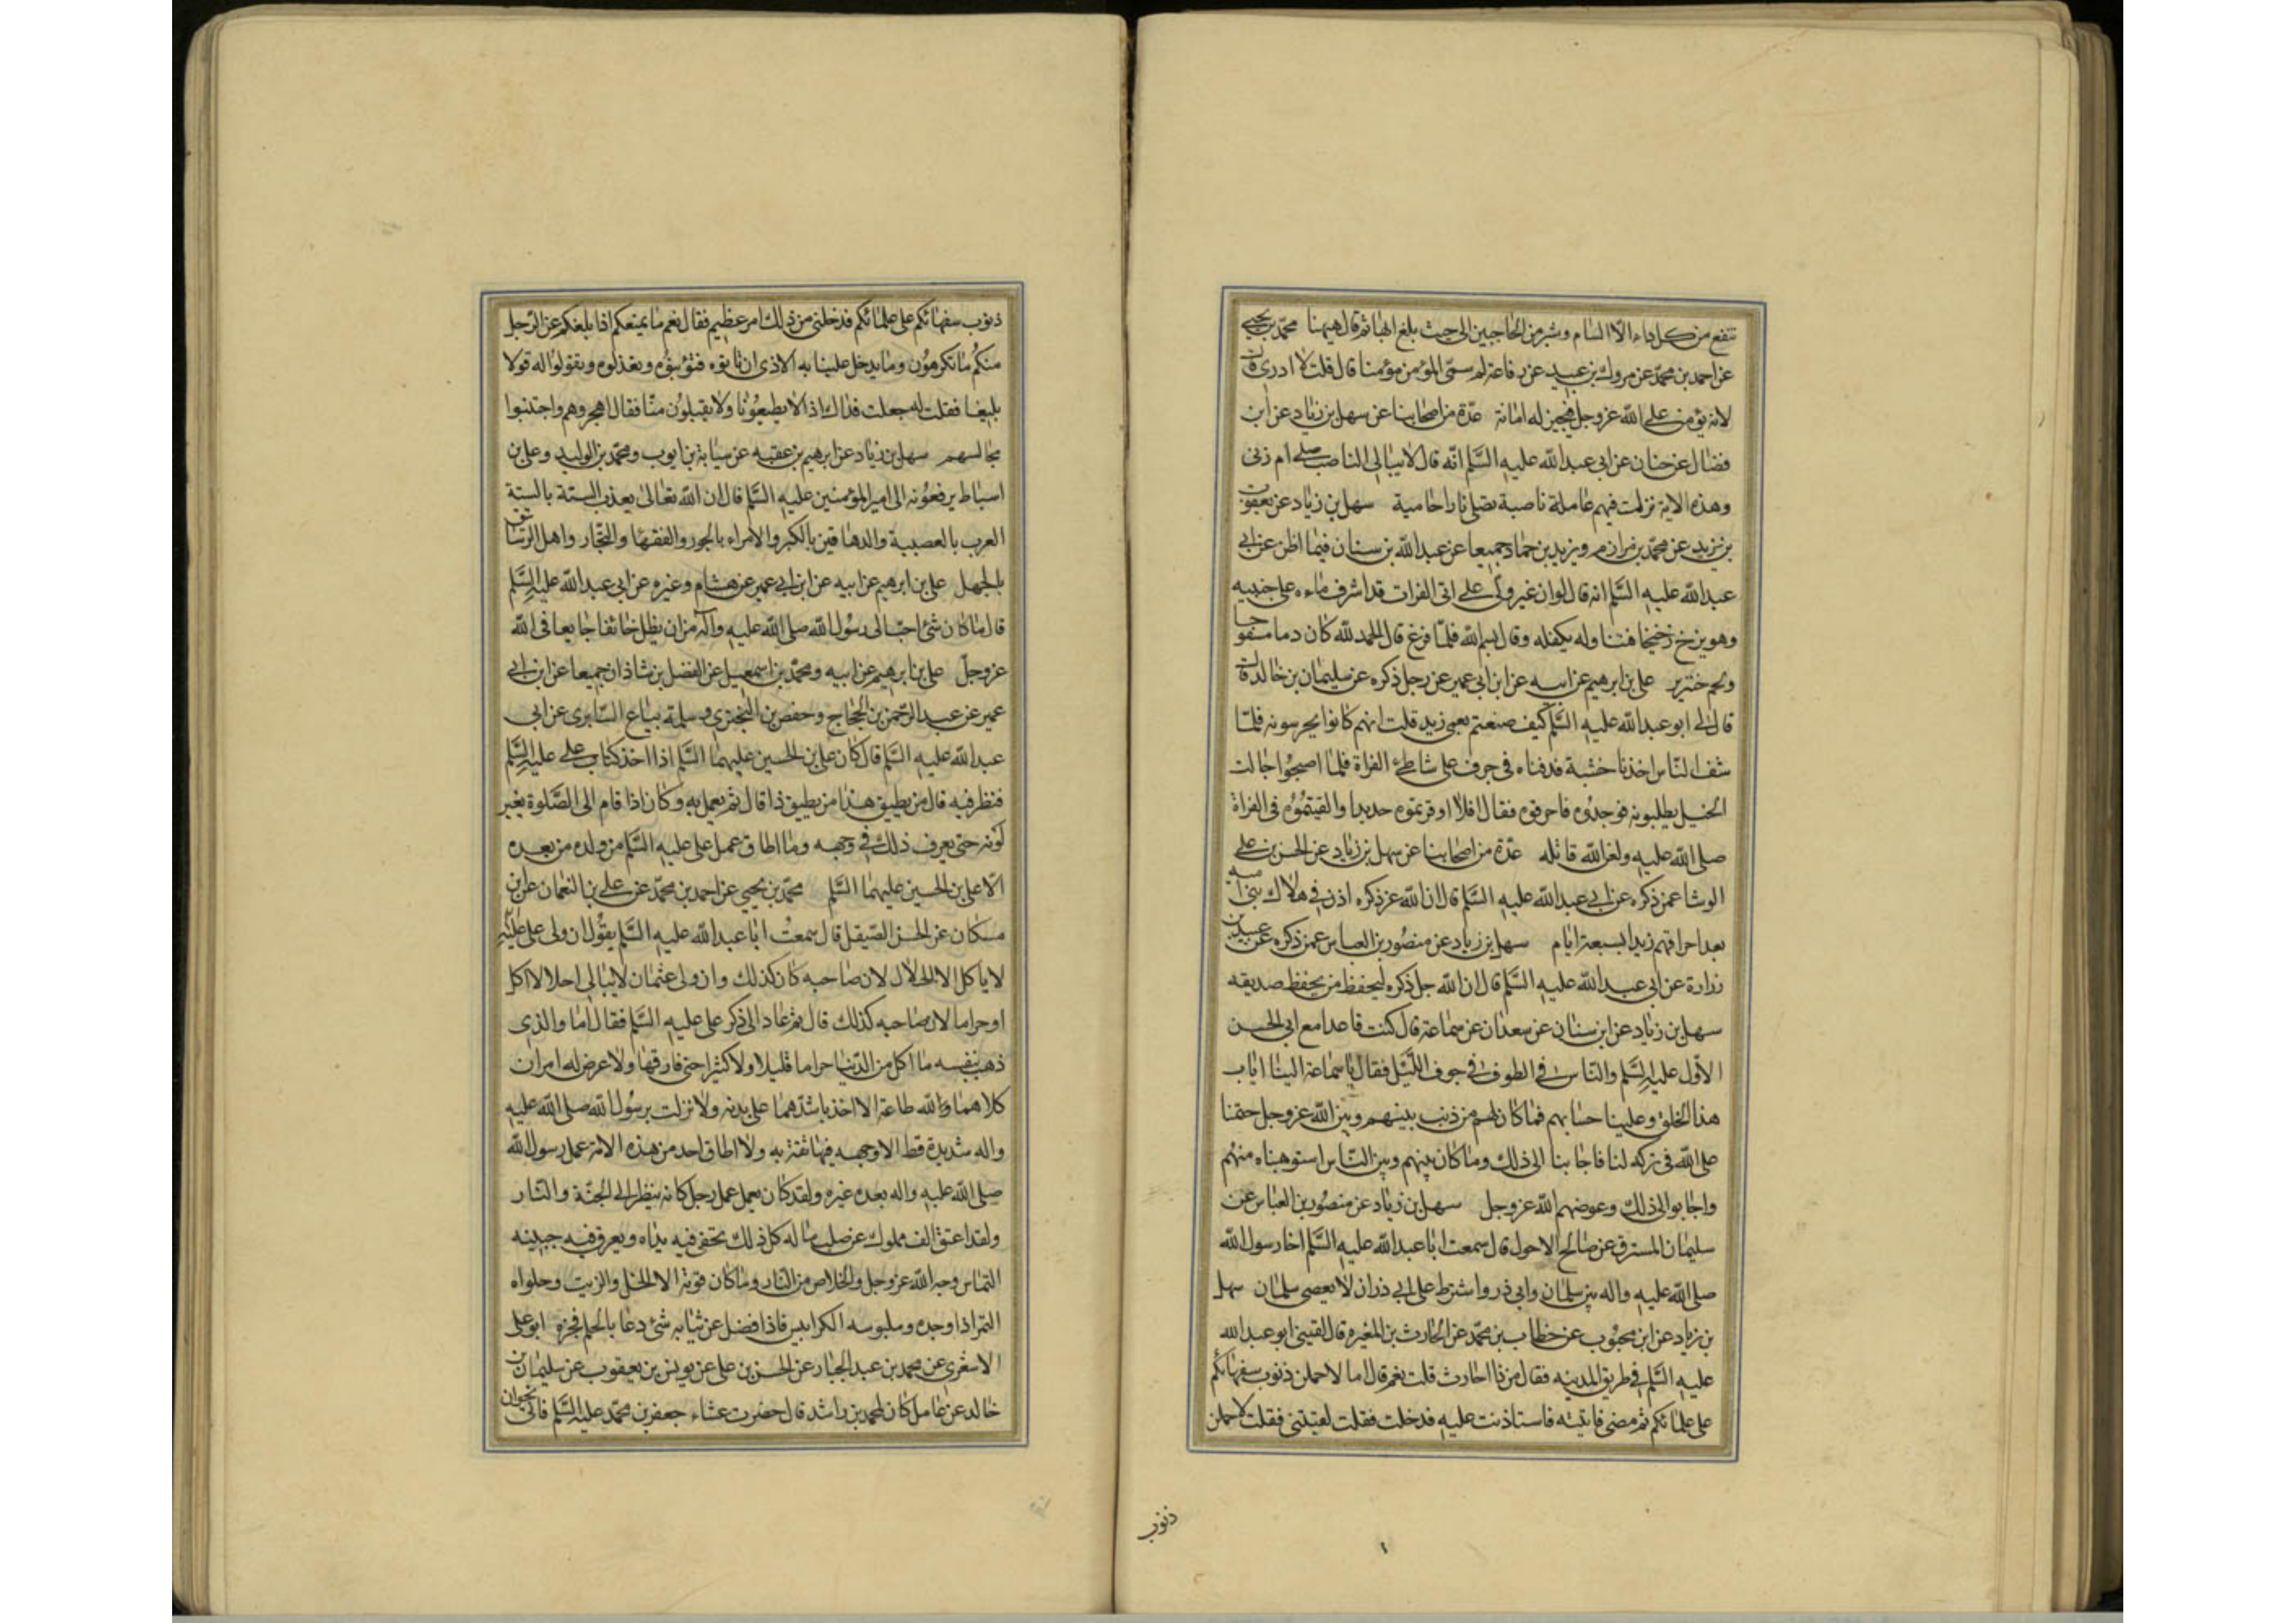 تنفع من كل داء الا السام وشبر من الحاجبين الى حيث بلغ ابهامه ثم قال هيهنا محمد بن يحيى
عن احمد بن محمد عن مروك بن عبيد عن رفاعة لم سمى المؤمن مؤمنا قال قلت لا ادرى ق
لانه يؤمن على الله عز وجل فيجيز له امانه عدة من اصحابنا عن سهل بن زياد عن ابن
فضال عن حنان عن ابى عبد الله عليه السلم انه قال لا يبالى الناصب صلى ام زنى
وهذه الاية نزلت فيهم عاملة ناصبة تصلى نارا حامية سهل بن زياد عن يعقوب
بن يزيد عن محمد بن مرازم ويزيد بن حماد جميعا عن عبد الله بن سنان فيما اظن عن ابى
عبد الله عليه السلم انه قال لو ان غير ولى على اتى الفرات قد اشرف ماءه على جنبيه
وهو يزخ زخيخا فتناوله بكفه وقال بسم الله فلما فرغ قال الحمد لله كان دما مسفوحا
ولحم خنزير على بن ابرهيم عن ابيه عن ابن ابى عمير عن رجل ذكره عن سليمان بن خالد ق
قال لى ابو عبد الله عليه السلم كيف صنعتم بعمى زيد قلت انهم كانوا يحرسونه فلما
شف الناس اخذنا خشبة فدفناه فى جرف على شاطئ الفراة فلما اصبحوا جالت
الخيل يطلبونه فوجدوه فاحرقوه فقال افلا اوقرتموه حديدا والقيتموه فى الفراة
صلى الله عليه ولعن الله قاتله عدة من اصحابنا عن سهل بن زياد عن الحسن بن على
الوشا عمن ذكره عن ابى عبد الله عليه السلم قال ان الله عز ذكره اذن فى هلاك بنى امية
بعد احراقهم زيدا بسبعة ايام سهل بن زياد عن منصور بن العباس عمن ذكره عن عبيد بن
زرارة عن ابى عبد الله عليه السلم قال ان الله جل ذكره ليحفظ من يحفظ صديقه
سهل بن زياد عن ابن سنان عن سعدان عن سماعة قال كنت قاعدا مع ابى الحسن
الاول عليه السلم والناس فى الطوف فى جوف الليل فقال يا سماعة الينا اياب
هذا الخلق وعلينا حسابهم فما كان لهم من ذنب بينهم وبين الله عز وجل حتمنا
على الله فى تركه لنا فاجابنا الى ذلك وما كان بينهم وبين الناس استوهبناه منهم
واجابوا الى ذلك وعوضهم الله عز وجل سهل بن زياد عن منصور بن العباس عن
سليمان المسترق عن صالح الاحول قال سمعت ابا عبد الله عليه السلم اخا رسول الله
صلى الله عليه واله بين سلمان وابى ذر واشترط على ابى ذر ان لا يعصى سلمان سهل
بن زياد عن ابن محبوب عن خطاب بن محمد عن الحارث بن المغيرة قال لقينى ابو عبد الله
عليه السلم فى طريق المدينه فقال من ذا احارث قلت نعم قال اما لاحملن ذنوب سفهائكم
على علمائكم ثم مضى فاتيته فاستاذنت عليه فدخلت فقلت لقيتنى فقلت لاحملن
ذنوب
ذنوب سفهائكم على علمائكم فدخلنى من ذلك امر عظيم فقال نعم ما يمنعكم اذا بلغكم عن الرجل
منكم ما تكرهون وما يدخل علينا به الاذى ان تاتوه فتؤنبوه وتعذلوه وتقولوا له قولا
بليغا فقلت له جعلت فداك اذا لا يطيعونا ولا يقبلون منا فقال اهجروهم واجتنبوا
مجالسهم سهل بن زياد عن ابرهيم بن عقبه عن سيابة بن ايوب ومحمد بن الوليد وعلى بن
اسباط يرفعونه الى امير المؤمنين عليه السلم قال ان الله تعالى يعذب الستة بالستة
العرب بالعصبية والدهاقين بالكبر والامراء بالجور والفقهاء والتجار واهل الرستاق
بالجهل على بن ابرهيم عن ابيه عن ابن ابى عمير عن هشام وغيره عن ابى عبد الله عليه السلم
قال ما كان شئ احب الى رسول الله صلى الله عليه وآله من ان يظل خائفا جايعا فى الله
عز وجل على بن ابرهيم عن ابيه ومحمد بن اسمعيل عن الفضل بن شاذان جميعا عن ابن ابى
عمير عن عبد الرحمن بن الحجاج وحفص بن البخترى وسلمة بياع السابرى عن ابى
عبد الله عليه السلم قال كان على بن الحسين عليهما السلم اذا اخذ كتاب على عليه السلم
فنظر فيه قال من يطيق هذا من يطيق ذا قال ثم يعمل به وكان اذا قام الى الصلوة تغير
لونه حتى يعرف ذلك فى وجهه وما اطاق عمل على عليه السلم من ولده من بعده
الا على بن الحسين عليهما السلم محمد بن يحيى عن احمد بن محمد عن على بن النعمان عن ابن
مسكان عن الحسن الصيقل قال سمعت ابا عبد الله عليه السلم يقول ان ولى على عليه
لا ياكل الا الحلال لان صاحبه كان كذلك وان ولى عثمان لا يبالى احلالا اكل
او حراما لان صاحبه كذلك قال ثم عاد الى ذكر على عليه السلم فقال اما والذى
ذهب بنفسه ما اكل من الدنيا حراما قليلا ولا كثيرا حتى فارقها ولا عرض له امران
كلاهما والله طاعة الا اخذ باشدهما على بدنه ولا نزلت برسول الله صلى الله عليه
واله شديدة قط الا وجهه فيها ثقة به ولا اطاق احد من هذه الامة عمل رسول الله
صلى الله عليه واله بعده غيره ولقد كان يعمل عمل رجل كانه ينظر الى الجنة والنار
ولقد اعتق الف مملوك عن صلب ماله كل ذلك تحفى فيه يداه ويعرق فيه جبينه
التماس وجه الله عز وجل والخلاص من النار وما كان قوته الا الخل والزيت وحلواه
التمر اذا وجده وملبوسه الكرابيس فاذا فضل عن ثيابه شئ دعا بالجلم فجزه ابو على
الاشعرى عن محمد بن عبد الجبار عن الحسن بن على عن يونس بن يعقوب عن سليمان بن
خالد عن عامل كان لمحمد بن راشد قال حضرت عشاء جعفر بن محمد عليه السلم فاتى بخوان